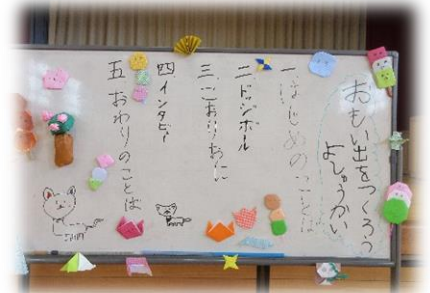 おもい出をつくろう
よしゅうかい
一、はじめのことば
二、ドッジボール
三、こおりおに
四、インタビュー
五、おわりのことば